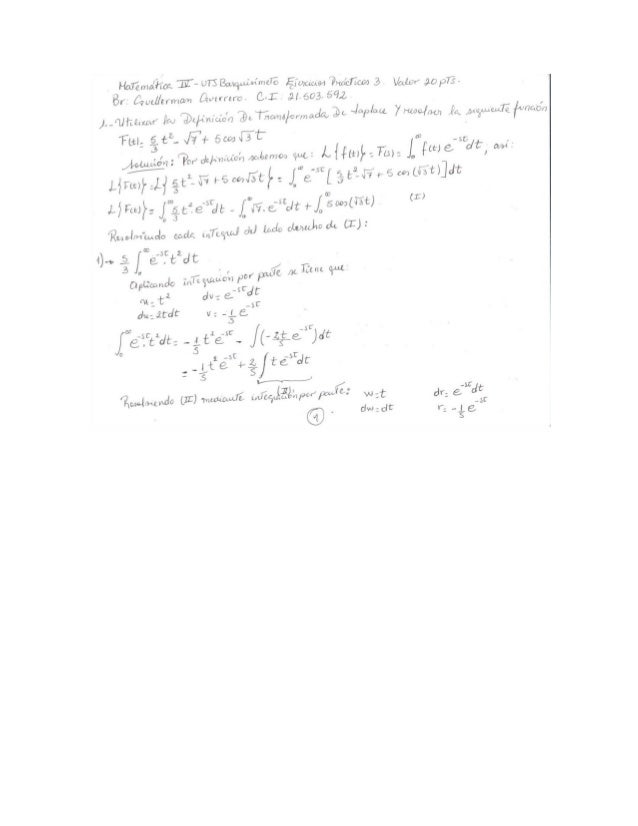 Matemática IV - UTS Barquisimeto Ejercicios Prácticos 3. Valor 20 pTs.
Br: Guellerman Guerrero. C.I: 21.503.592
1.- Utilizar la Definición De Transformada De Laplace Y resolver la siguiente función
F(t) = 5/3 t² - √7 + 5 cos √3 t
Solución: Por definición sabemos que: L{f(t)} = F(s) = ∫₀^∞ f(t) e^-st dt, así:
L{F(t)} = L{5/3 t² - √7 + 5 cos √3t} = ∫₀^∞ e^-st [5/3 t² - √7 + 5 cos (√3t)] dt
L{F(t)} = ∫₀^∞ 5/3 t² e^-st dt - ∫₀^∞ √7 . e^-st dt + ∫₀^∞ 5 cos (√3t) (I)
Resolviendo cada integral del lado derecho de (I):
1)→ 5/3 ∫₀^∞ e^-st . t² dt
Aplicando integración por parte se Tiene que:
u = t² dv = e^-st dt
du = 2t dt v = -1/s e^-st
∫₀^∞ e^-st . t² dt = -1/s t² e^-st - ∫(-2t/s e^-st) dt
= -1/s t² e^-st + 2/s ∫ t e^-st dt
(II)
Resolviendo (II) mediante integración por parte: w = t dr = e^-st dt
dw = dt r = -1/s e^-st
1